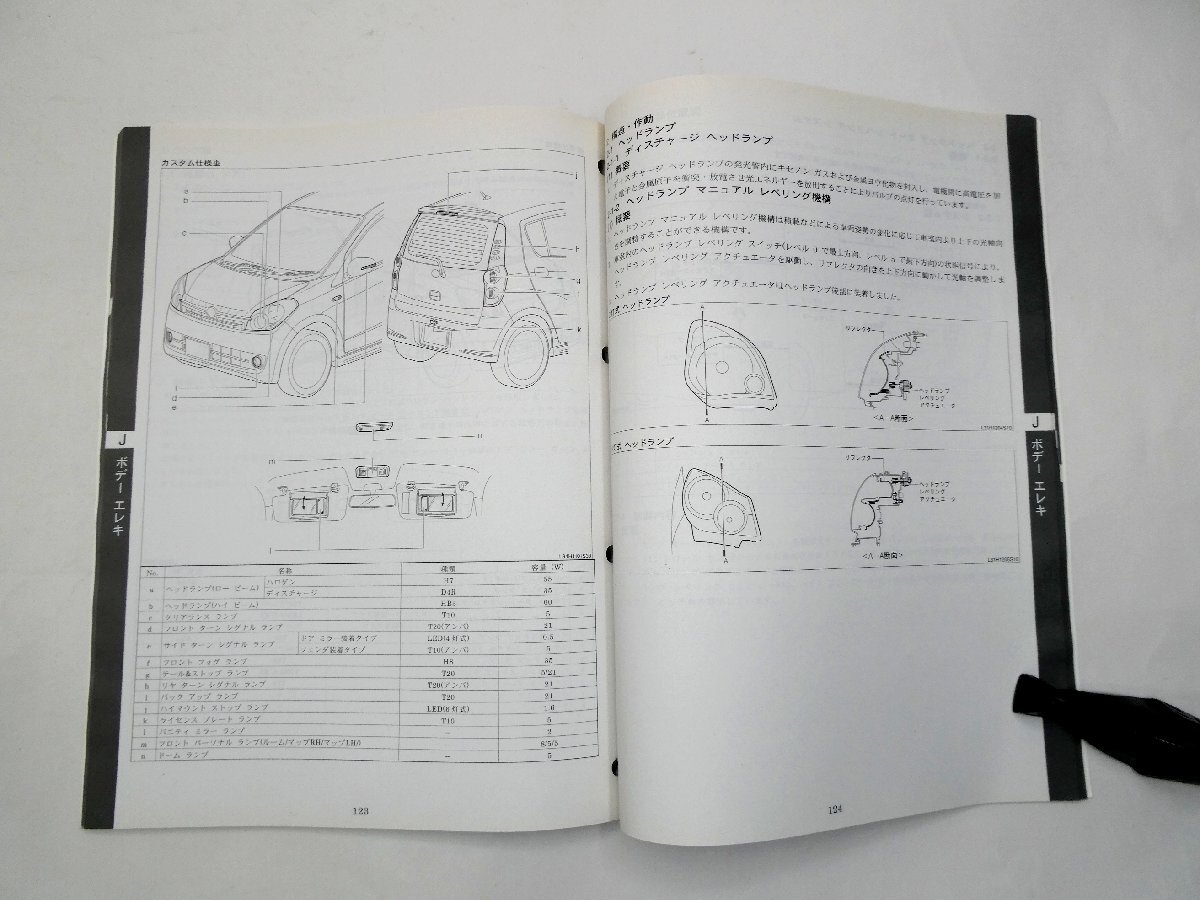 カスタム仕様車
a
b
c
j
h
g
i
k
f
d
e
n
m
l
No. 名称 種類 容量(W)
a ヘッドランプ(ロー ビーム) ハロゲン H7 55
ディスチャージ D4R 35
b ヘッドランプ(ハイ ビーム) HB3 60
c クリアランス ランプ T10 5
d フロント ターン シグナル ランプ T20(アンバ) 21
e サイド ターン シグナル ランプ ドア ミラー装着タイプ LED(4灯式) 0.5
フェンダ装着タイプ T10(アンバ) 5
f フロント フォグ ランプ H8 35
g テール&ストップ ランプ T20 5/21
h リヤ ターン シグナル ランプ T20(アンバ) 21
i バック アップ ランプ T20 21
j ハイマウント ストップ ランプ LED(6灯式) 1.6
k ライセンス プレート ランプ T10 5
l バニティ ミラー ランプ － 2
m フロント パーソナル ランプ(ルーム/マップRH/マップLH) 8/5/5
n ドーム ランプ － 5
123
J
ボデー エレキ
構点・作動
ヘッドランプ
ディスチャージ ヘッドランプ
概要
ディスチャージ ヘッドランプの発光管内にキセノン ガスおよび金属ヨウ化物を封入し、電極間に高電圧を
電子と金属原子を衝突・放電させ光エネルギーを放出することによりバルブの点灯を行っています。
-2 ヘッドランプ マニュアル レベリング機構
概要
ヘッドランプ マニュアル レベリング機構は積載などによる車両姿勢の変化に応じ、車室内より上下の光軸向
を調整することができる機構です。
車室内のヘッドランプ レベリング スイッチ(レベル 0 で最上方向、レベル 5 で最下方向)の状態信号により、
ヘッドランプ レベリング アクチュエータを駆動し、リフレクタの向きを上下方向に動かして光軸を調整しま
す。
ヘッドランプ レベリング アクチュエータはヘッドランプ後部に装着しました。
ヘッドランプ
A
A
リフレクター
ヘッドランプ
レベリング
アクチュエータ
<A A断面>
ヘッドランプ
A
A
リフレクター
ヘッドランプ
レベリング
アクチュエータ
<A A断面>
124
J
ボデー エレキ